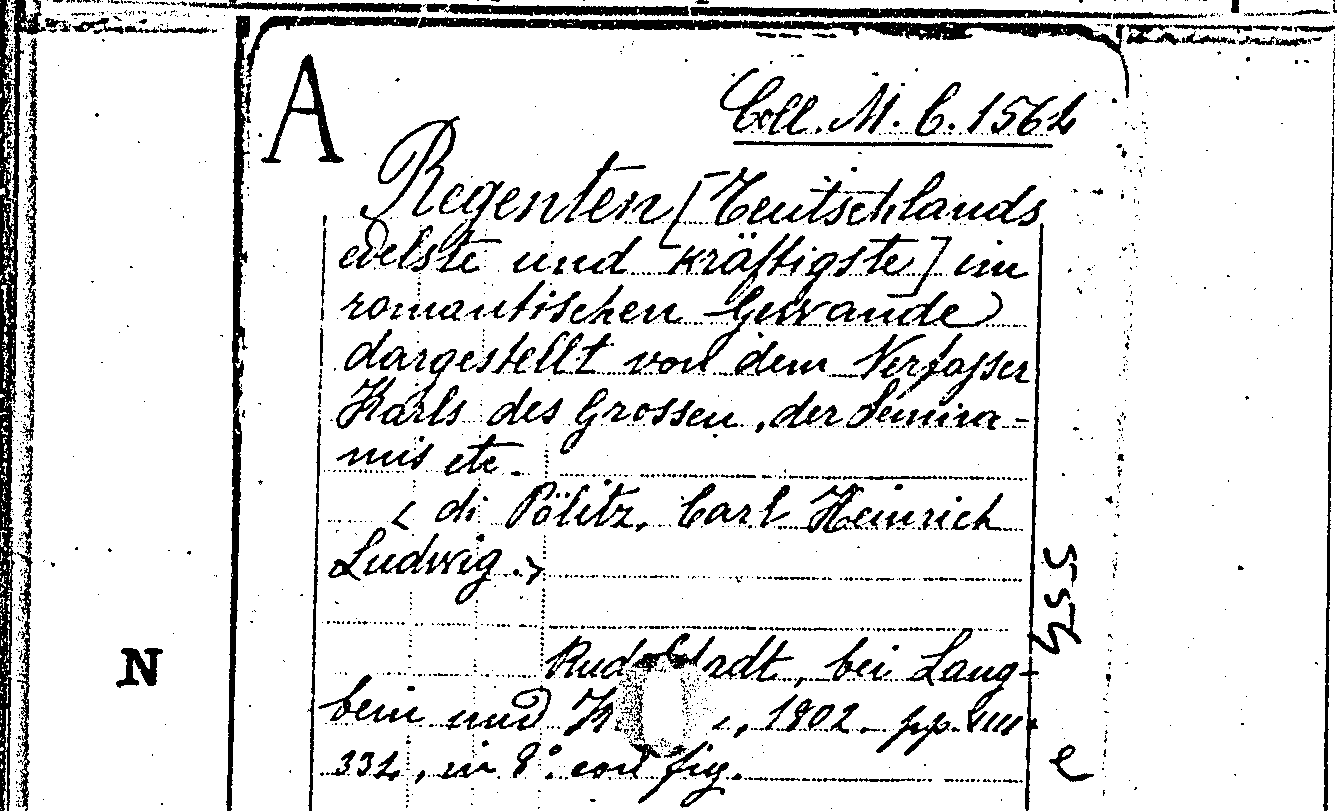 A
Coll. M. C. 1562
Regenten [Teutschlands
edelste und kräftigste] im
romantischen Gewande
dargestellt von dem Verfasser
Karls des Grossen, der Semira-
mis etc.
< di Pölitz, Carl Heinrich
Ludwig. >
Rudolstadt, bei Lang-
bein und K, 1802. pp.
332, in 8°. con fig.
N
e